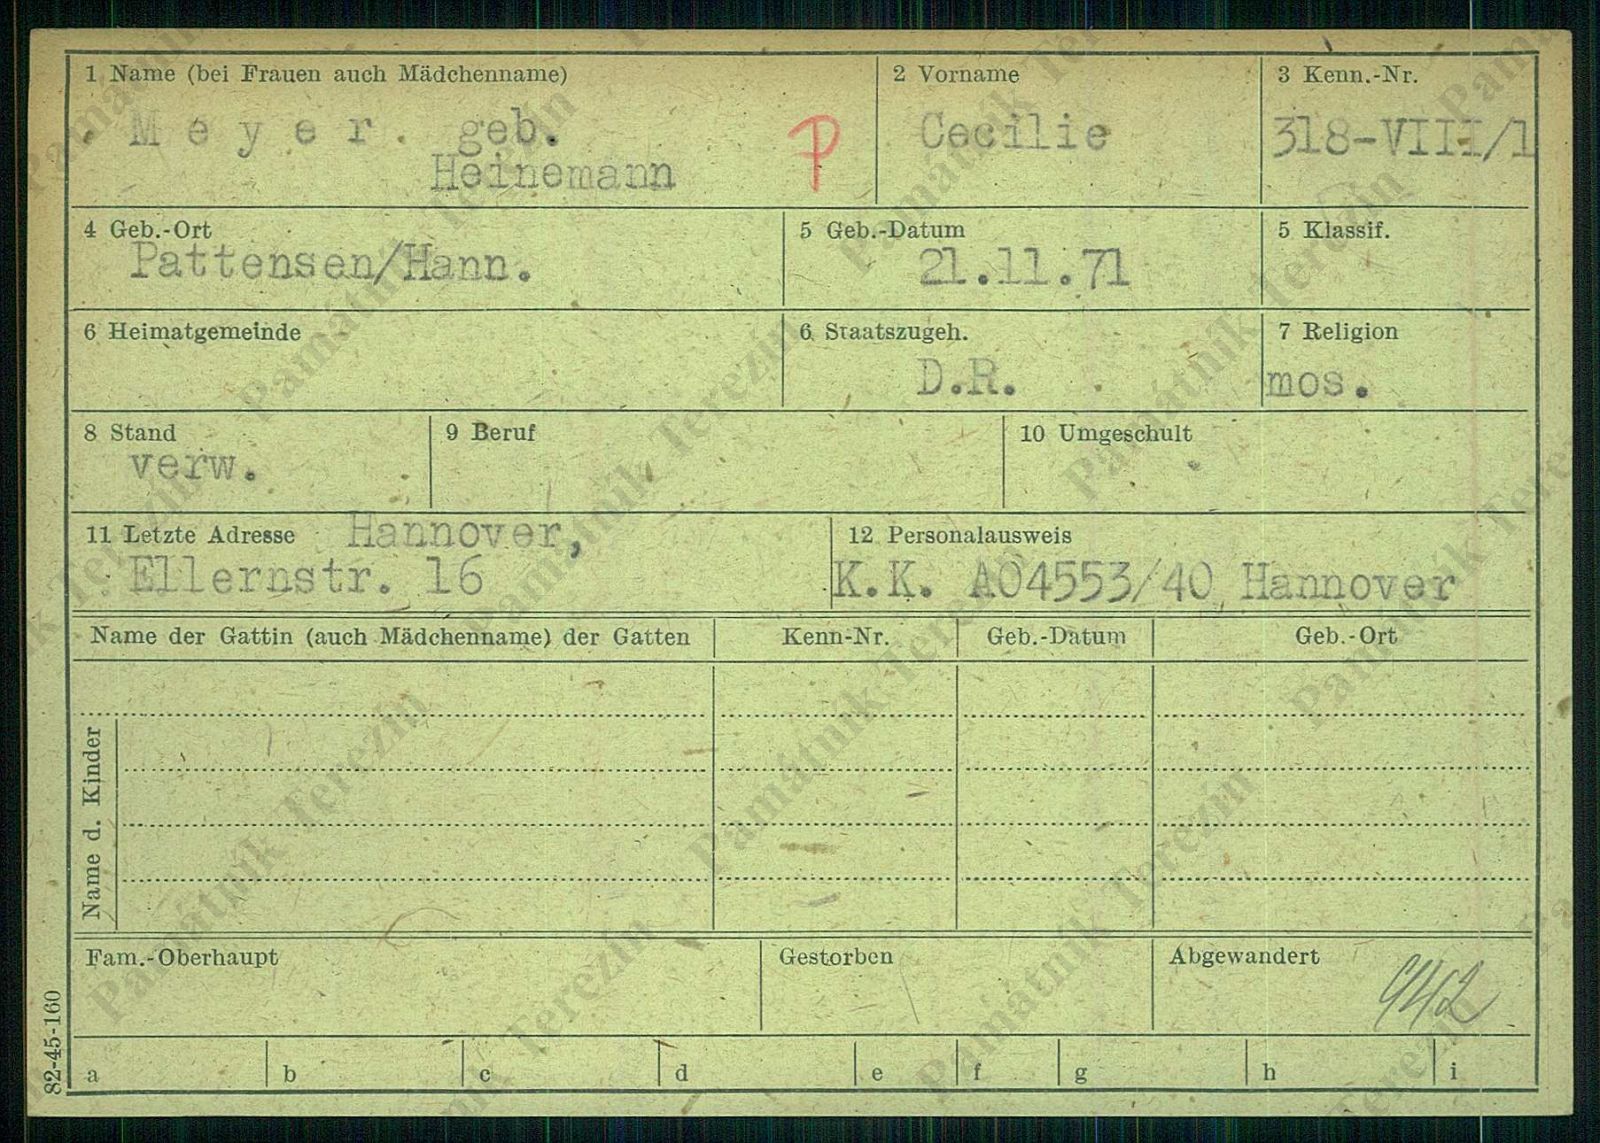 1 Name (bei Frauen auch Mädchenname)
Meyer geb.
Heinemann
P
2 Vorname
Cecilie
3 Kenn.-Nr.
318-VIII/1
4 Geb.-Ort
Pattensen/Hann.
5 Geb.-Datum
21.11.71
5 Klassif.
6 Heimatgemeinde
6 Staatszugeh.
D.R.
7 Religion
mos.
8 Stand
verw.
9 Beruf
10 Umgeschult
11 Letzte Adresse Hannover,
Ellernstr. 16
12 Personalausweis
K.K. A04553/40 Hannover
Name der Gattin (auch Mädchenname) der Gatten
Kenn-Nr.
Geb.-Datum
Geb.-Ort
Name d. Kinder
Fam.-Oberhaupt
Gestorben
Abgewandert
942
82-45-160
a b c d e f g h i
Památník Terezín